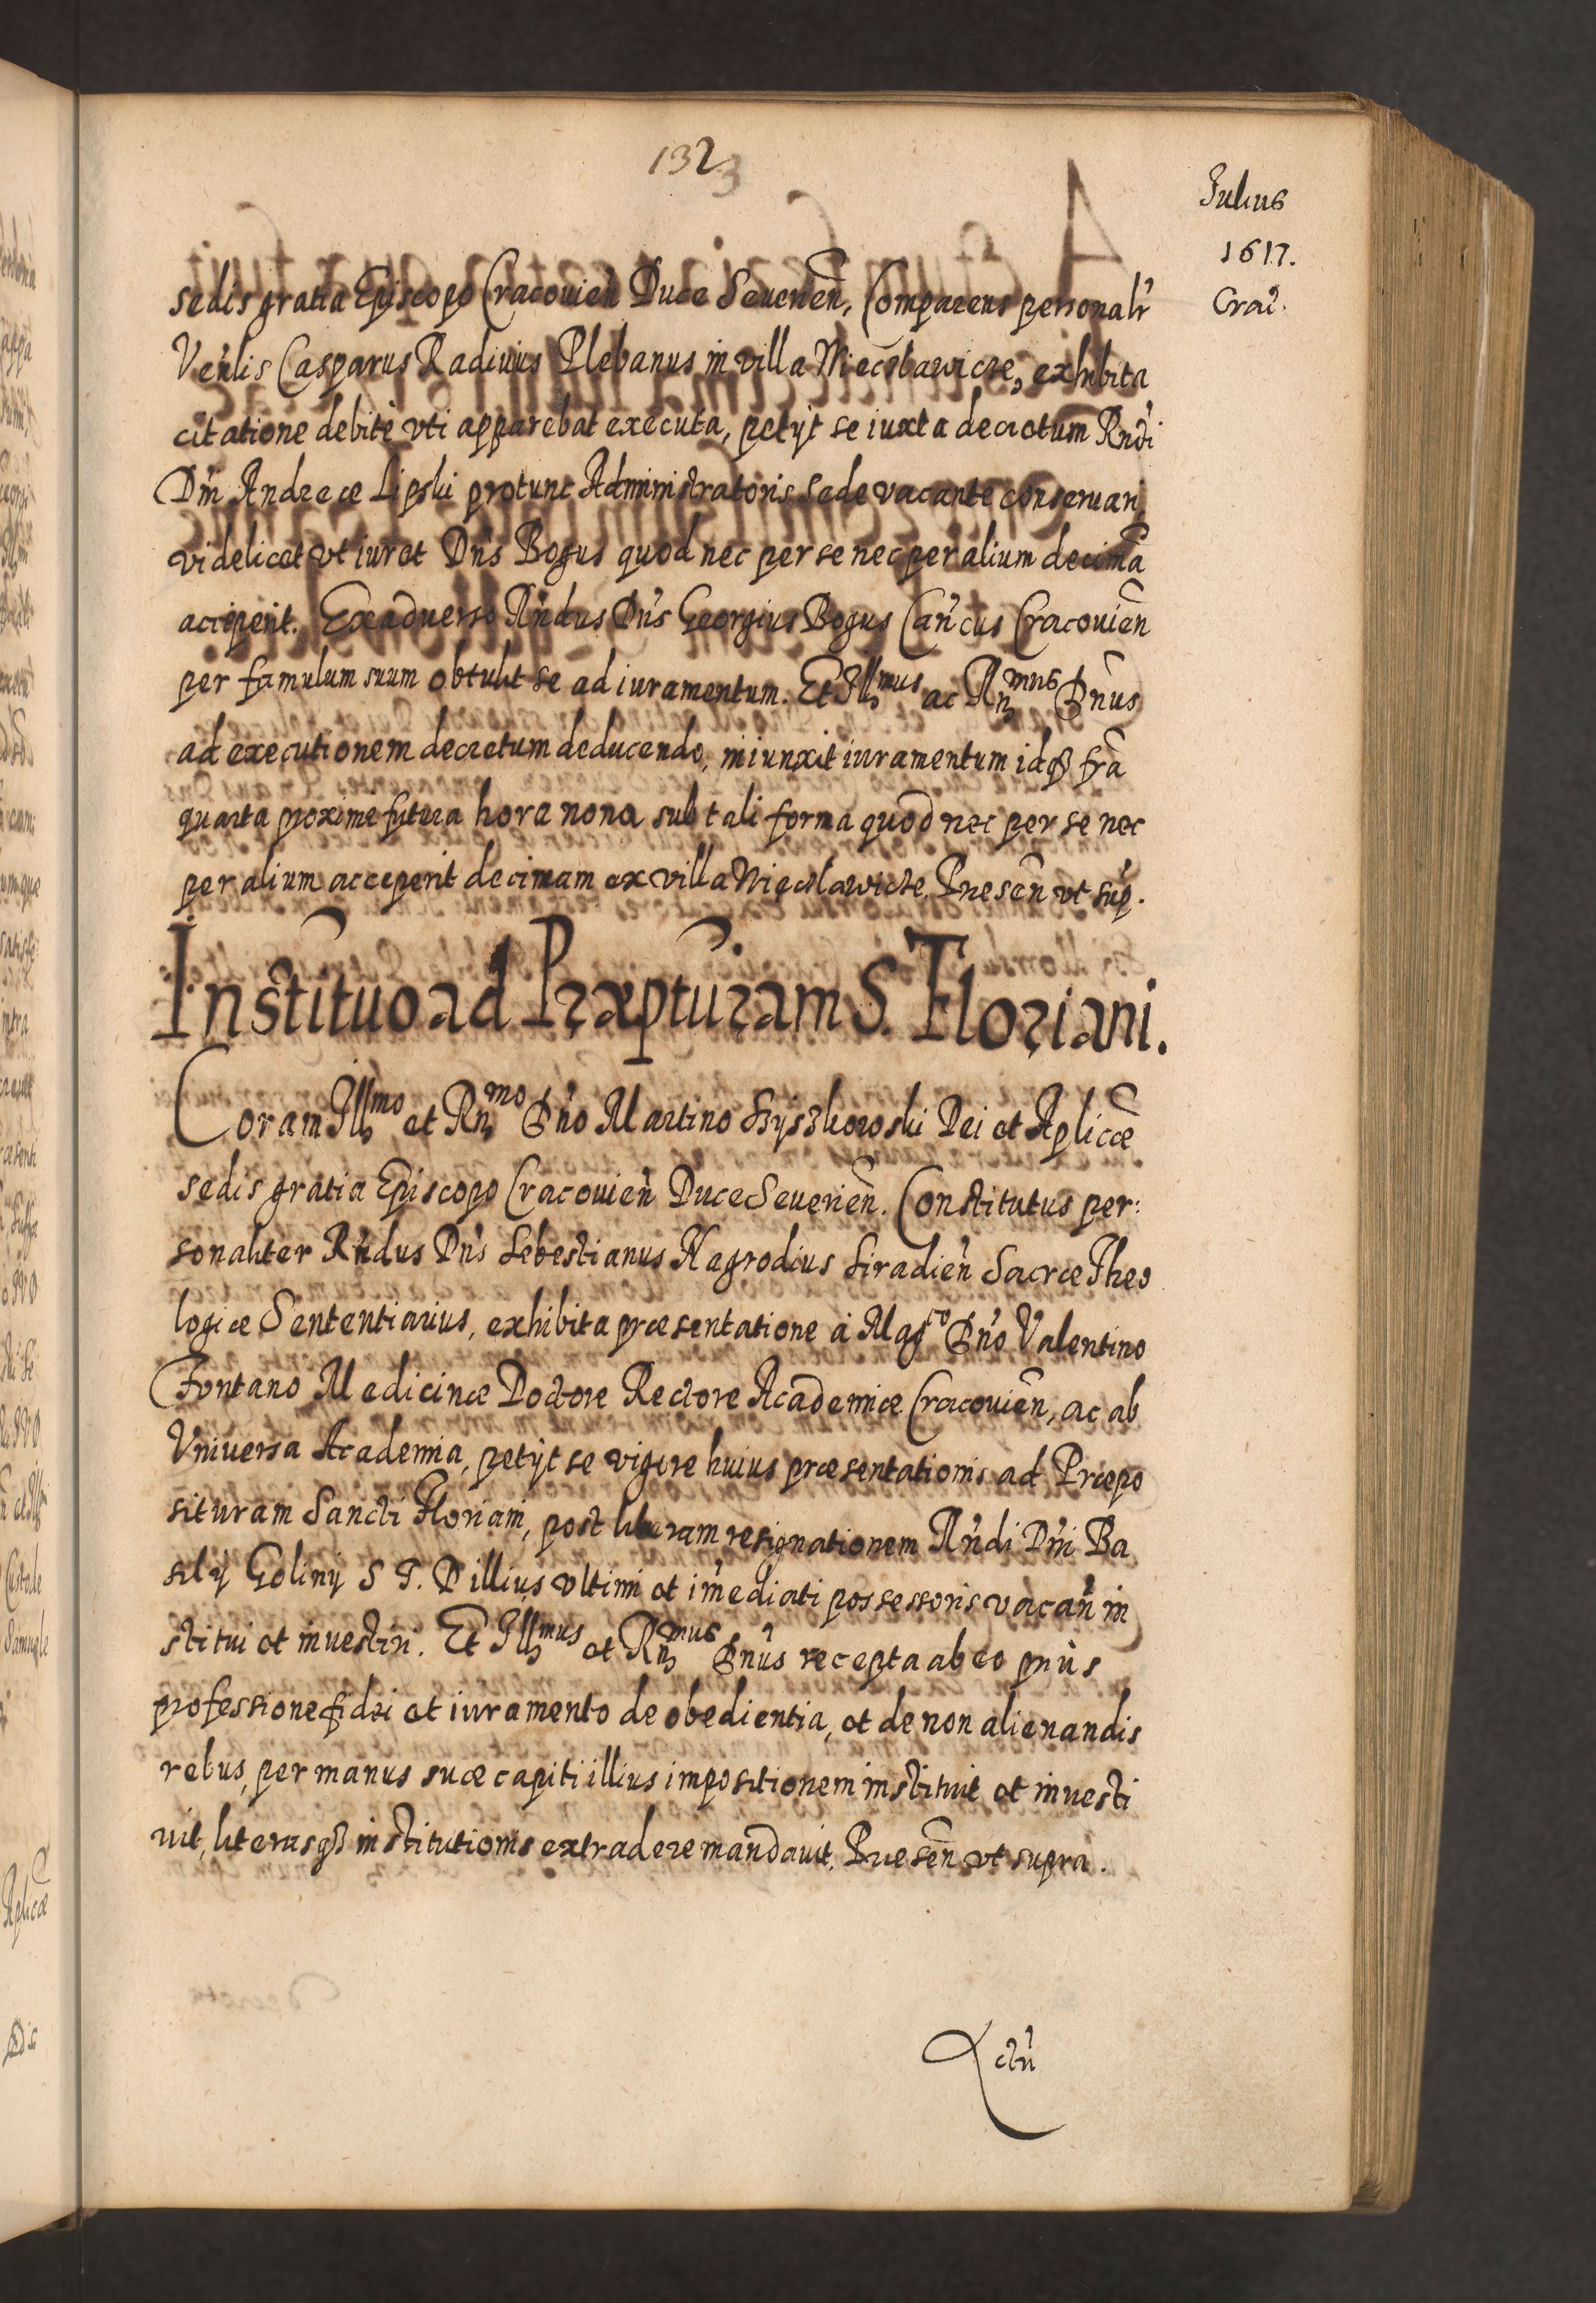 132
Julius
1617.
Crac̃.
sedis gratia Episcopo Cracovien̄ Duce Severien̄, Comparens personalr̃
Ven̄lis Casparus Radivius Plebanus in villa Wieclawicze, exhibita
citatione debitè vti apparebat executa, petÿt se iuxta decretum Rndi
Dm̄ Andreæ Lipski protunc Administratoris sede vacante conservari,
videlicet vt iuret Dn̄s Bogus quod nec per se nec per alium decimā
acceperit. Exadverso Rn̄dus Dn̄s Georgius Bogus Can̄cus Cracovien̄
per famulum suum obtulit se ad iuramentum. Et Illmus ac Rnmus Dn̄us
ad executionem decretum deducendo, iniunxit iuramentum idqȝ fr̄a
quarta proximè futura hora nona sub tali forma quod nec per se nec
per alium acceperit decimam ex villa Więclawicze. Præsen̄ vt sup̄.
Institu͠o ad Præpturam S. Floriani.
Coram Illmo et Rnmo Dn̄o Martino Szÿszkowski Dei et Aplicæ
sedis gratia Episcopo Cracovien̄ Duce Severien̄. Constitutus per:
sonaliter Rn̄dus Dn̄s Sebestianus Nagrodius Siradien̄ Sacræ Theo
logiæ Sententiarius, exhibita præsentatione à Magco Dn̄o Valentino
Fontano Medicinæ Doctore Rectore Academiæ Cracovien̄, ac ab
Vniversa Academia, petÿt se vigore huius præsentationis ad Præpo
situram Sancti Floriani, post liberam resignationem Rn̄di Dn̄i Ba
silÿ Golinÿ S T. D illius vltimi et im̄ediati possessoris vacan̄ in
stitui et investiri. Et Illmus et Rnmus Dn̄us recepta ab eo priùs
professione fidei et iuramento de obedientia, et de non alienandis
rebus, per manus suæ capiti illius impositionem instituit et investi
vit, literasqȝ institutionis extradere mandavit. Præsen̄ vt supra.
Actu̅